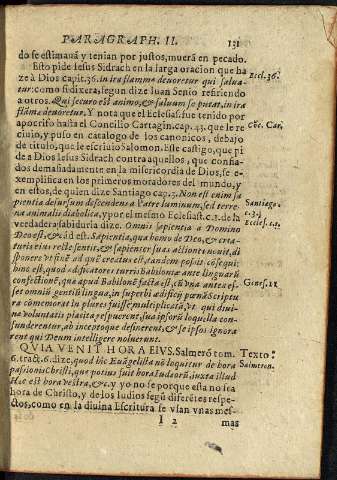 PARAGRAPH. II. 131
do se estimauã y tenian por justos, muerã en pecado.
Esto pide Iesus Sidrach en la larga oracion que ha
ze à Dios capit. 36. in ira flammæ deuoretur qui salua- Ecel. 36.
tur: como si dixera, segun dize Iuan Senio refiriendo
a otros. Qui securo est animo, & saluum se putat, in ira
flãmæ deuoretur. Y nota que el Eclesias. fue tenido por
apocrifo hasta el Concilio Cartagin. cap. 43. que le re Cõc. Car.
ciuio, y puso en catalogo de los canonicos, debajo
de titulo, que le escriuio Salomon. Este castigo, que pi
de a Dios Iesus Sidrach contra aquellos, que confia-
dos demasiadamente en la misericordia de Dios, se e-
xemplifica en los primeros moradores del mundo, y
en estos, de quien dize Santiago cap. 3. Non est enim sa
pientia desursum descendens a Patre luminum, sed terre Santiago.
na animalis diabolica, y por el mesmo Eclesiast. c. 1. de la c. 3.
verdadera sabiduria dize. Omnis sapientia a Domino Eclesi. c. 1.
Deo est, & ad est. Sapientia, qua homo de Deo, & crea-
turis eius recte sentit, & sapienter suas actiones nouit, di
sponere vt finẽ ad quẽ creatus est, tandem possit cosequi:
hinc est, quod ædificatores turris Babiloniæ ante linguarũ
confectionẽ, quæ apud Babilonẽ facta est, cũ vna ante es- Genes. 11
set omniũ gentiũ lingua, in superbi ædificij pœnã Scriptu
ra cõmemorat in plures fuisse multiplicatã, vt qui diui-
na voluntatis placita respuerent, sua ipsorũ loquella con-
funderentur, ab inceptoque desinerent, & se ipsos ignora
rent qui Deum intelligere noluerunt.
QVIA VENIT HORA EIVS. Salmerõ tom. Texto.
6. tract. 6. dize, quod hîc Euãgelista nõ loquitur de hora Salmeron.
passionis Christi, quæ potius fuit hora Iudæorũ, iuxta illud
Hæc est hora vestra, &c. y yo no se porque esta no sea
hora de Christo, y de los Iudios segũ diferẽtes respe-
ctos, como en la diuina Escritura se vsan vnas mes-
I 2 mas